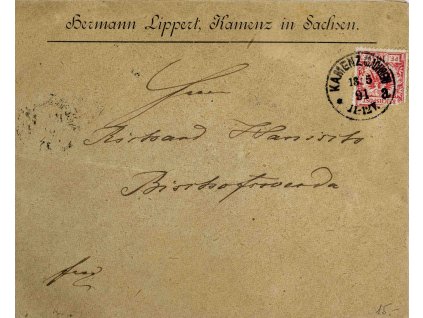 Hermann Lippert, Kamenz in Sachsen.
KAMENZ
18 5
91 a
11-12V.
Herrn
Richard
Bischofswerda
15.-